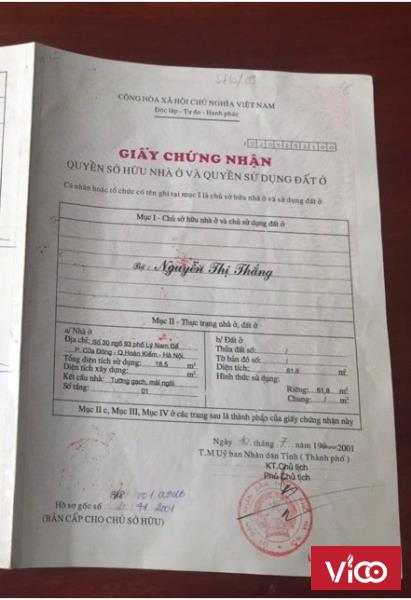 CỘNG HÒA XÃ HỘI CHỦ NGHĨA VIỆT NAM
Độc lập - Tự do - Hạnh phúc
GIẤY CHỨNG NHẬN
QUYỀN SỞ HỮU NHÀ Ở VÀ QUYỀN SỬ DỤNG ĐẤT Ở
Cá nhân hoặc tổ chức có tên ghi tại mục I là chủ sở hữu nhà ở và sử dụng đất ở
Mục I - Chủ sở hữu nhà ở và chủ sử dụng đất ở
Bà: Nguyễn Thị Thắng
Mục II - Thực trạng nhà ở, đất ở
a/ Nhà ở
Địa chỉ: Số 30 ngõ 93 phố Lý Nam Đế
P. Cửa Đông - Q.Hoàn Kiếm - Hà Nội.
Tổng diện tích sử dụng: 18,5 m²
Diện tích xây dựng: m²
Kết cấu nhà: Tường gạch, mái ngói
Số tầng: 01
b/ Đất ở
Thửa đất số: /
Tờ bản đồ số: /
Diện tích: 61,8 m²
Hình thức sử dụng:
Riêng: 61,8 m²
Chung: / m²
Mục II c, Mục III, Mục IV ở các trang sau là thành phần của giấy chứng nhận này
Ngày tháng 7 năm 2001
T.M Uỷ ban Nhân dân Tỉnh (Thành phố)
KT.Chủ tịch
Phó Chủ tịch
Hồ sơ gốc số 2001
(BẢN CẤP CHO CHỦ SỞ HỮU)
VICO